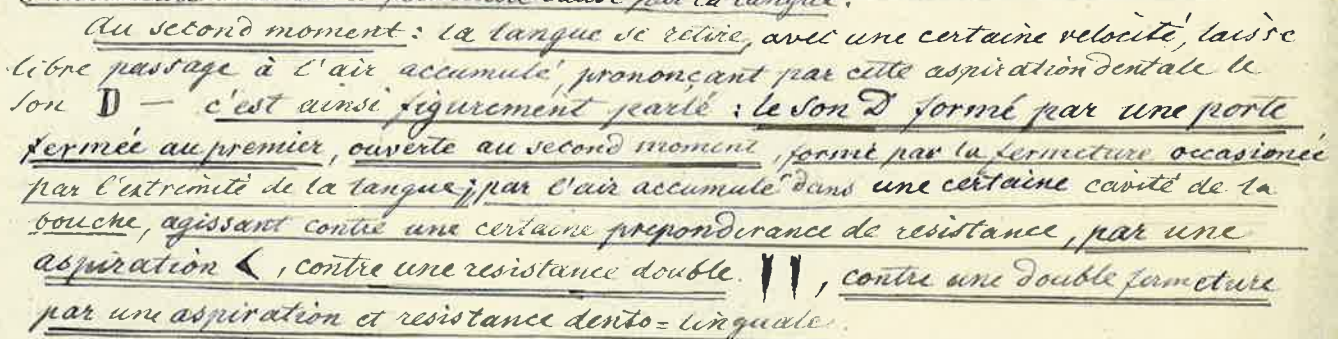 Au second moment: la langue se retire, avec une certaine velocité, laisse
libre passage à l'air accumulé, prononçant par cette aspiration dentale le
son D — c'est ainsi figurement parlé: le son D formé par une porte
fermée au premier, ouverte au second moment, formé par la fermeture occasionée
par l'extremité de la langue; par l'air accumulé dans une certaine cavité de la
bouche, agissant contre une certaine preponderance de resistance, par une
aspiration <, contre une resistance double ||, contre une double fermeture
par une aspiration et resistance dento=linguale.